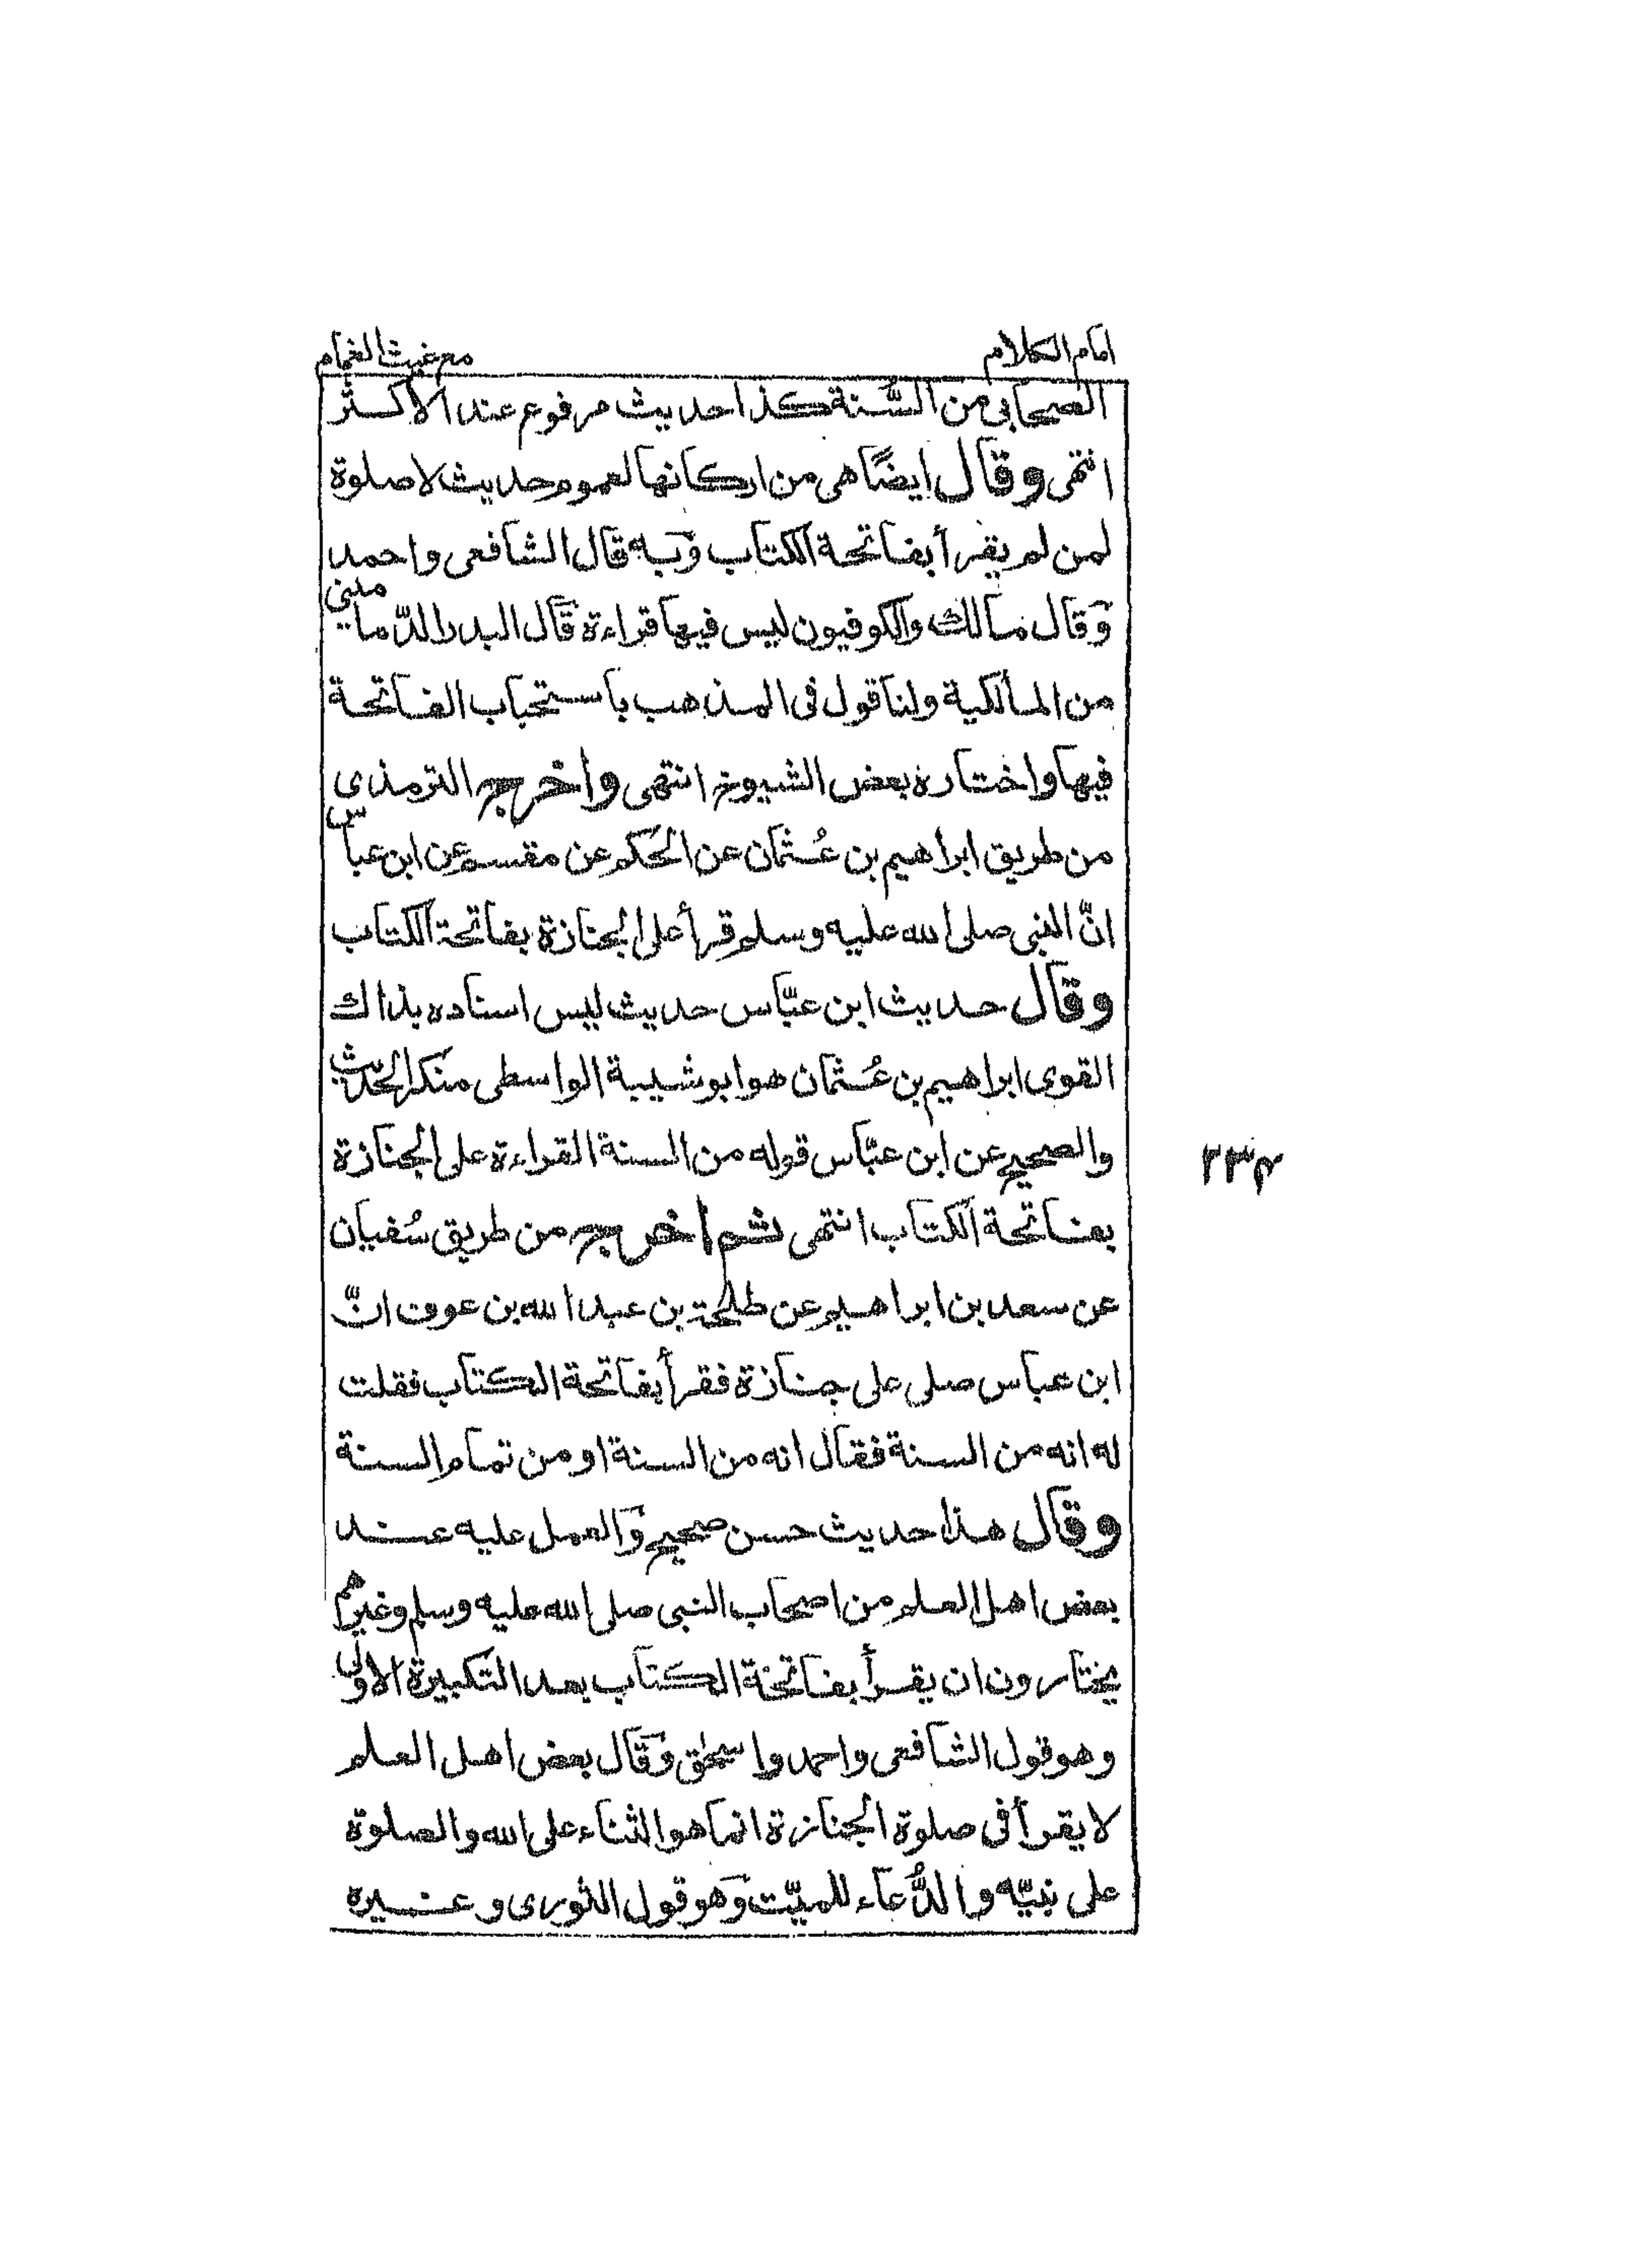 امام الكلام
مع غيث الغمام
الصحابى من السّنة كذا حديث مرفوع عند الاكثر
انتهى وقال ايضًا هى من اركانها لعموم حديث لا صلوة
لمن لم يقرأ بفاتحة الكتاب وبه قال الشافعى واحمد
وقال مالك والكوفيون ليس فيها قراءة قال البدر الدّمامينى
من المالكية ولنا قول فى المذهب باستحباب الفاتحة
فيها واختاره بعض الشيوخ انتهى واخرجه الترمذى
من طريق ابراهيم بن عُثمان عن الحكم عن مقسم عن ابن عباس
انّ النبى صلى الله عليه وسلم قرأ على الجنازة بفاتحة الكتاب
وقال حديث ابن عبّاس حديث ليس اسناده بذاك
القوى ابراهيم بن عُثمان هو ابو شيبة الواسطى منكر الحديث
والصحيح عن ابن عبّاس قوله من السنة القراءة على الجنازة
بفاتحة الكتاب انتهى ثم اخرجه من طريق سُفيان
عن سعد بن ابراهيم عن طلحة بن عبد الله بن عوف انّ
ابن عباس صلى على جنازة فقرأ بفاتحة الكتاب فقلت
له انه من السنة فقال انه من السنة او من تمام السنة
وقال هذا حديث حسن صحيح والعمل عليه عند
بعض اهل العلم من اصحاب النبى صلى الله عليه وسلم وغيرهم
يختارون ان يقرأ بفاتحة الكتاب بعد التكبيرة الاولى
وهو قول الشافعى واحمد واسحٰق وقال بعض اهل العلم
لا يقرأ فى صلوة الجنازة انما هو الثناء على الله والصلوة
على نبيّه والدُّعاء للميّت وهو قول الثورى وغيره
٢٣٤